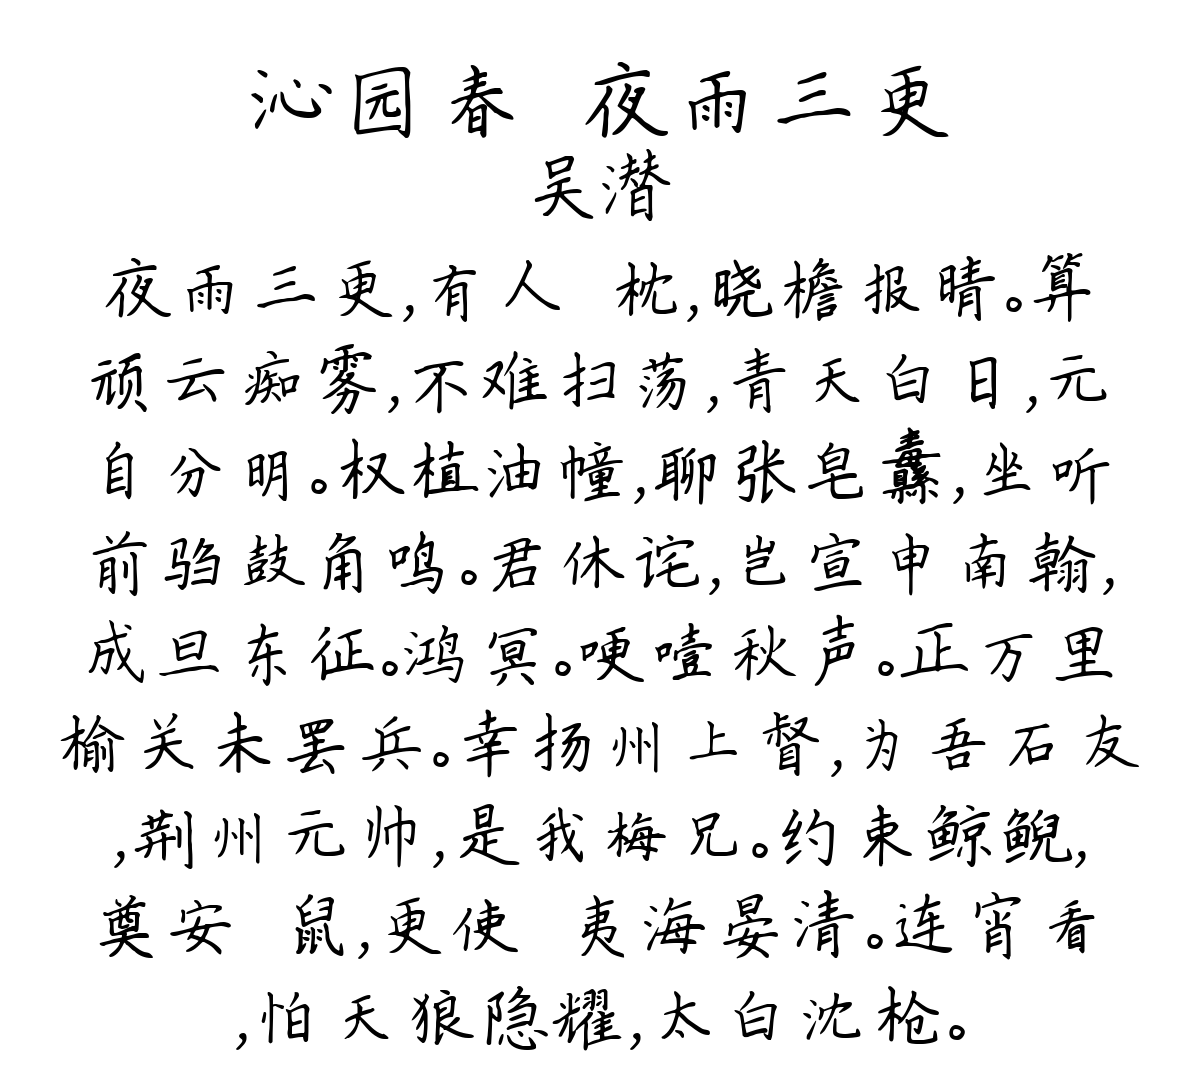 沁园春 夜雨三更
吴潜
夜雨三更,有人 枕,晓檐报晴。算
顽云痴雾,不难扫荡,青天白日,元
自分明。权植油幢,聊张皂纛,坐听
前驺鼓角鸣。君休诧,岂宣申南翰,
成旦东征。鸿冥。哽噎秋声。正万里
榆关未罢兵。幸扬州上督,为吾石友
,荆州元帅,是我梅兄。约束鲸鲵,
奠安 鼠,更使 夷海晏清。连宵看
,怕天狼隐耀,太白沈枪。